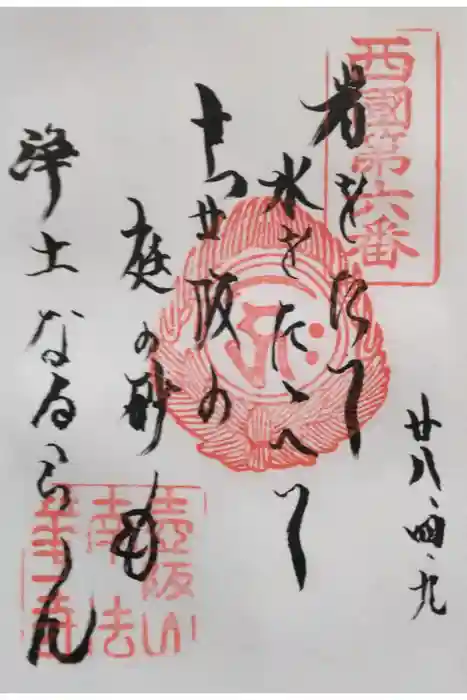 西國第六番
廿八、四、九
岩をたて
水をたゝへて
壺阪の
庭の砂も
浄土なるらん
壺阪山
南法
華寺